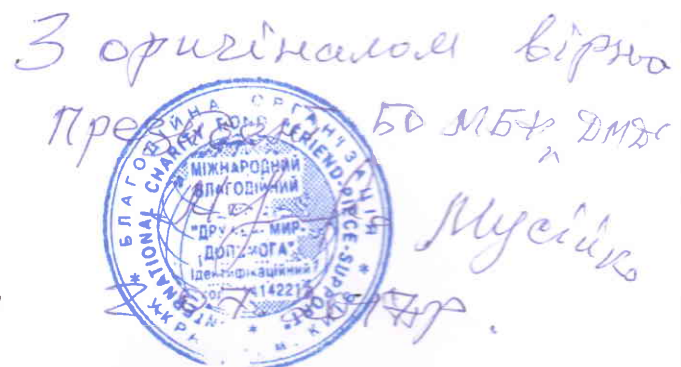 З оригіналом вірно
Президент БО МБФ "ДМД"
Мусійко
2017р.
БЛАГОДІЙНА ОРГАНІЗАЦІЯ
INTERNATIONAL CHARITY FOND "FRIEND-PIECE-SUPPORT"
МІЖНАРОДНИЙ
БЛАГОДІЙНИЙ
"ДРУЖБА- МИР-
ДОПОМОГА"
Ідентифікаційний